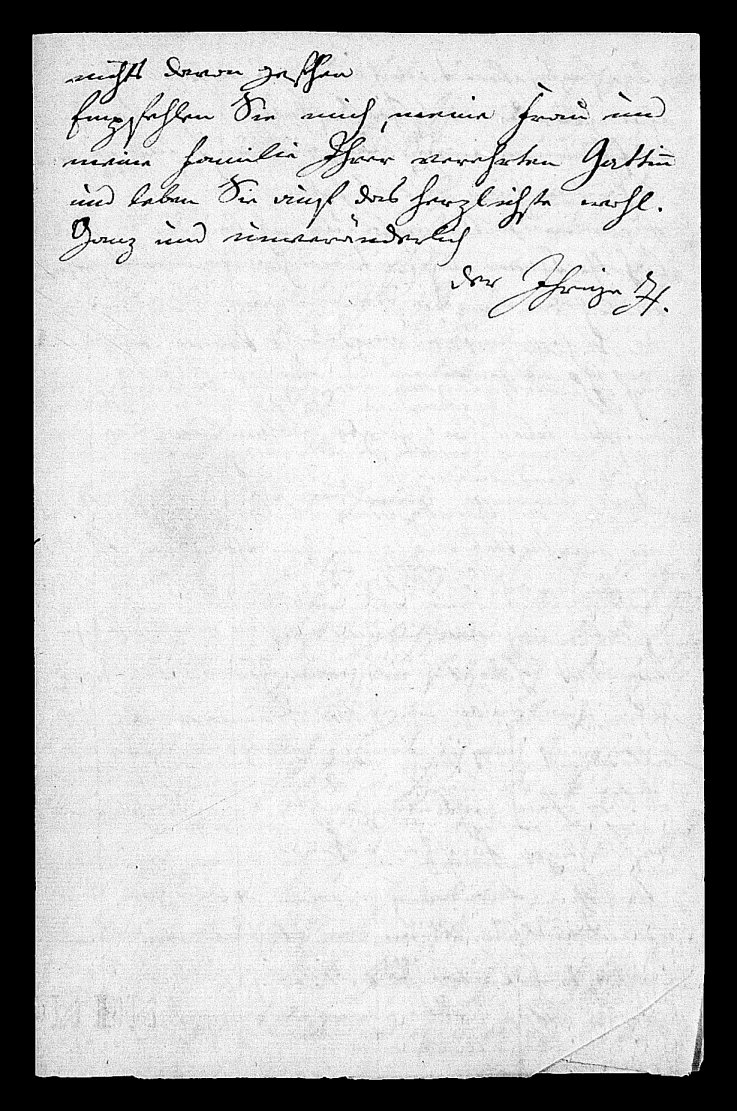 nichts davon gesehen
Empfehlen Sie mich, meine Frau und
meine Familie Ihrer verehrten Gattin
und leben Sie auf das herzlichste wohl.
Ganz und unveränderlich
der Ihrige H.